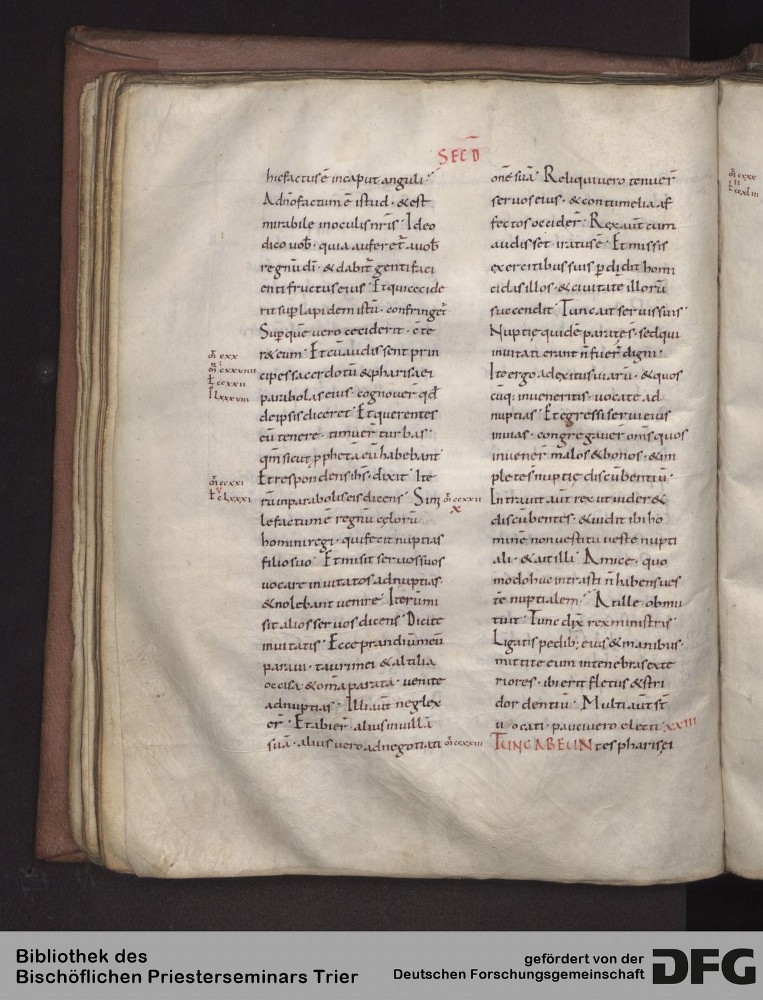 SECD
hic factus ē in caput anguli·
A dn̄o factum ē istud· & est
mirabile in oculis nr̄is· Ideo
dico vob̄· quia auferet᷑ a uob̄
regnū dī· & dabit᷑ genti faci
enti fructus eius· Et qui cecide
rit sup̄ lapidem istū· confringet᷑
Sup̄ que uero ceciderit· c̄te
r& eum· Et cū audissent prin
cipes sacerdotū & pharisaei
parabolas eius· cognouer̄ qd̄
de ipsis diceret· Et querentes
eū tenere· timuer̄ turbas·
qm̄ sicut p̄pheta eū habebant·
Et respondens ih̄s· dixit Ite
rū in parabolis eis dicens· Simi
le factum ē regnū celorū
homini regi· qui fecit nuptias
filio suo· Et misit seruos suos
uocare inuitatos ad nuptias·
& nolebant uenire· Iterū mi
sit alios seruos dicens· Dicite
inuitatis· Ecce prandiū meū
paraui· tauri mei & altilia
occisa & om̄a parata· uenite
ad nuptias· Illi aūt neglex
er̄· Et abier̄ alius in uillā
suā· alius uero ad negotiati
onē suā· Reliqui uero tenuer̄
seruos eius· & contumelia af
fectos occider̄· Rex aūt cum
audisset iratus ē· Et missis
exercitibus suis p̄didit homi
cidas illos· & ciuitatē illorū
succendit· Tunc ait seruis suis·
Nuptie quidē parate s̄· sed qui
inuitati erant n̄ fuer̄ digni·
Ite ergo ad exitus uiarū· & quos
cūq; inueneritis· uocate ad
nuptias· Et egressi serui eius
in uias· congregauer̄ om̄s quos
inuener̄ malos & bonos· & im
plete s̄ nuptie discūbentiū·
Intrauit aūt rex ut uider&
discūbentes· & uidit ibi ho
minē non uestitū ueste nupti
ali· & ait illi· Amice· quo
modo huc intrasti n̄ habens ues
tē nuptialem· At ille obmu
tuit· Tunc dix̄ rex ministris·
Ligatis pedib; eius & manibus·
mittite eum in tenebras exte
riores· ibi erit fletus & stri
dor dentiū· Multi aūt st̄
uocati· pauci uero electi· XXIII
TUNC ABEUNtes pharisęi
Bibliothek des
Bischöflichen Priesterseminars Trier
gefördert von der
Deutschen Forschungsgemeinschaft
DFG